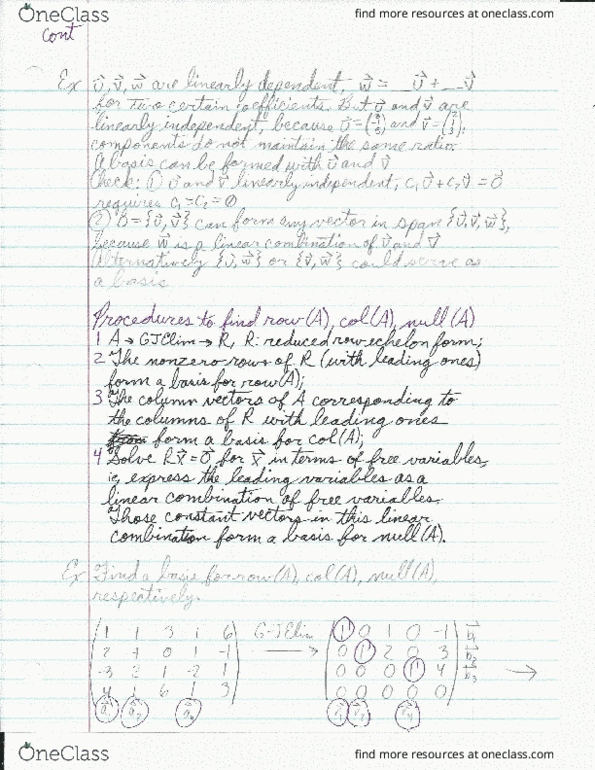 OneClass
find more resources at oneclass.com
cont
Ex u⃗, v⃗, w⃗ are linearly dependent, w⃗ = __u⃗ + __v⃗
for two certain coefficients. But u⃗ and v⃗ are
linearly independent, because u⃗ = and v⃗ =
components do not maintain the same ratio.
A basis can be formed with u⃗ and v⃗
Check: ① u⃗ and v⃗ linearly independent, c₁u⃗ + c₂v⃗ = 0⃗
requires c₁ = c₂ = 0
② B = {u⃗, v⃗} can form any vector in span {u⃗, v⃗, w⃗},
because w⃗ is a linear combination of u⃗ and v⃗
Alternatively {u⃗, w⃗} or {v⃗, w⃗} could serve as
a basis.
Procedures to find row(A), col(A), null(A)
1 A → GJElim → R, R: reduced row echelon form;
2 The nonzero rows of R (with leading ones)
form a basis for row(A);
3 The column vectors of A corresponding to
the columns of R with leading ones
form a basis for col(A);
4 Solve Rx⃗ = 0⃗ for x⃗ in terms of free variables,
ie, express the leading variables as a
linear combination of free variables.
Those constant vectors in this linear
combination form a basis for null(A).
Ex Find a basis for row(A), col(A), null(A),
respectively.
1 1 3 1 6 G-J Elim 1 0 1 0 -1
2 -1 0 1 -1 → 0 1 2 0 3 →
-3 2 1 -2 1 0 0 0 1 4
4 1 6 1 3 0 0 0 0 0
OneClass
find more resources at oneclass.com